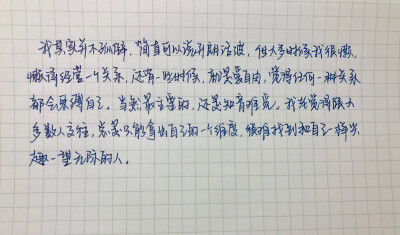 我其实并不孤僻，简直可以说开朗活泼，但大多时候我很懒，
懒得经营一个关系，还有一些时候，就是爱自由，觉得任何一种关系
都会束缚自己。当然最主要的，还是知音难觅。我老觉得跟大
多数人交往，总是只能拿出自己的一个维度，很难找到和自己一样兴
趣一望无际的人。